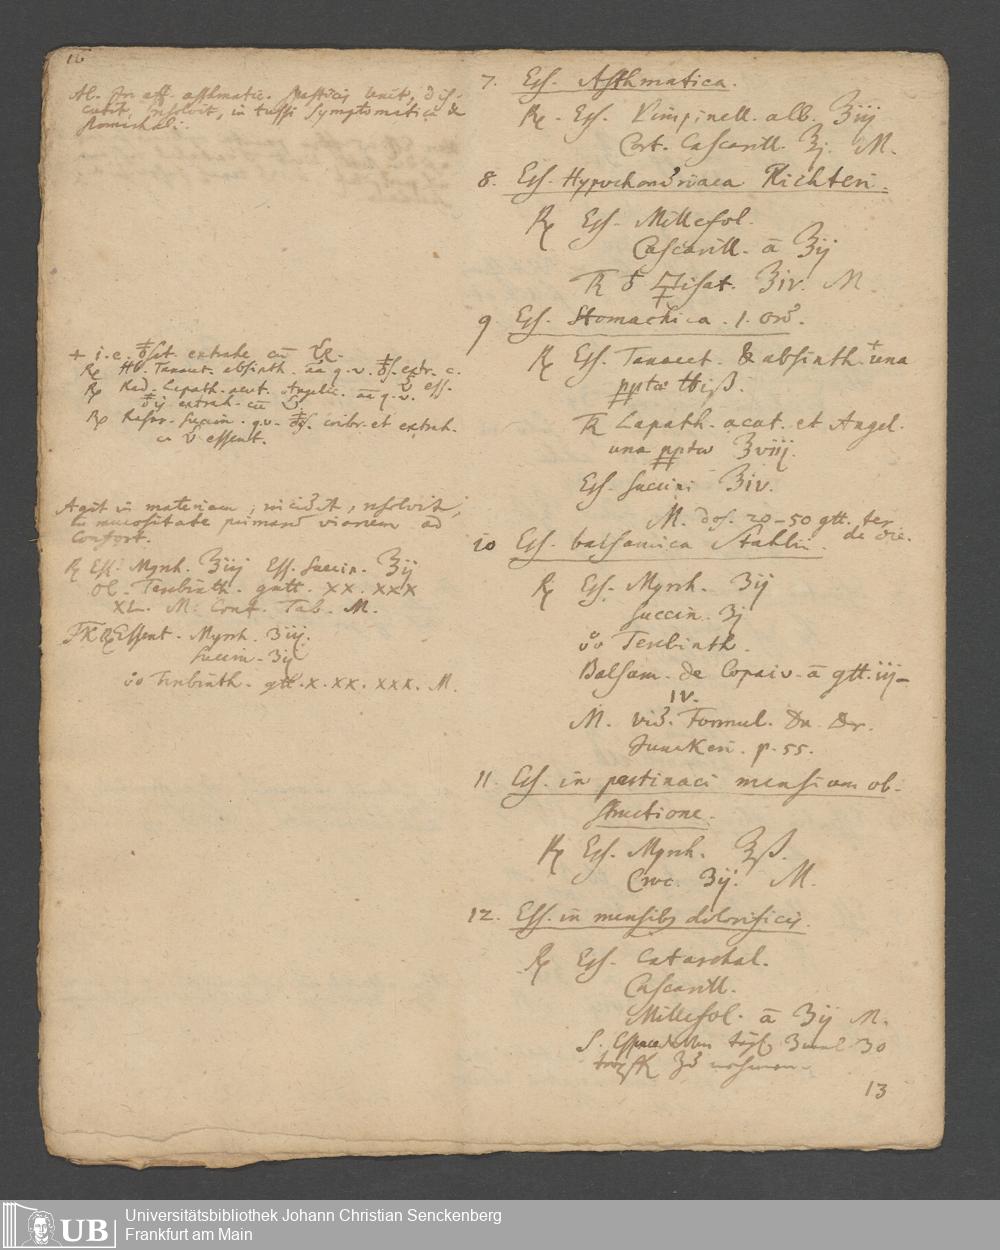 16
Al. In aff. asthmatic. spasticis venit, dis-
cutit, resolvit, in tussi symptomatica &
stomachali.
+ i.e. extrahe cū
℞ Hb. Tanacet. absinth. aa q.v. extr. c.
℞ Rad. Lapath. acut. Angelic. aa q.v. ess.
extrah. cū
℞ Rasur. Succin. q.v. cribr. et extrah.
c. essent.
Agit in materiam, incidit, resolvit,
in mucositate primarum viarum ad
confort.
℞ Ess. Myrrh. ʒiij Ess. Succin. ʒij
Ol. Terebinth. gutt. XX. XXX
XL. M. Conf. Tab. M.
℞ Essent. Myrrh. ʒiij.
Succin. ʒij
Terebinth. gtt. X. XX. XXX. M.
7. Ess. Asthmatica.
℞. Ess. Pimpinell. alb. ʒiij
Cort. Cascarill. ʒj. M.
8. Ess. Hypochondriaca Richteri.
℞ Ess. Millefol.
Cascarill. ā ʒij
ʒiv. M.
9 Ess. Stomachica. 1. ord.
℞ Ess. Tanacet. & absinth. + una
ppt
Lapath. acut. et Angel.
una ppt ʒviij.
Ess. Succini ʒiv.
M. dos. 20-50 gtt. ter
de die.
10 Ess. balsamica Stahlii.
℞ Ess. Myrrh. ʒij
Succin. ʒj
Terebinth.
Balsam. de Copaiv. ā gtt. iij-
IV.
M. vid. Formul. Dn. Dr.
Junckeri. p. 55.
11. Ess. in pertinaci mensium ob-
structione.
℞ Ess. Myrrh. ʒß.
Croc. ʒij. M.
12. Ess. in mensib9 dolorificis.
℞ Ess. Catarrhal.
Cascarill.
Millefol. ā ʒij M.
S. 3 mal 30
13
Universitätsbibliothek Johann Christian Senckenberg
Frankfurt am Main
UB